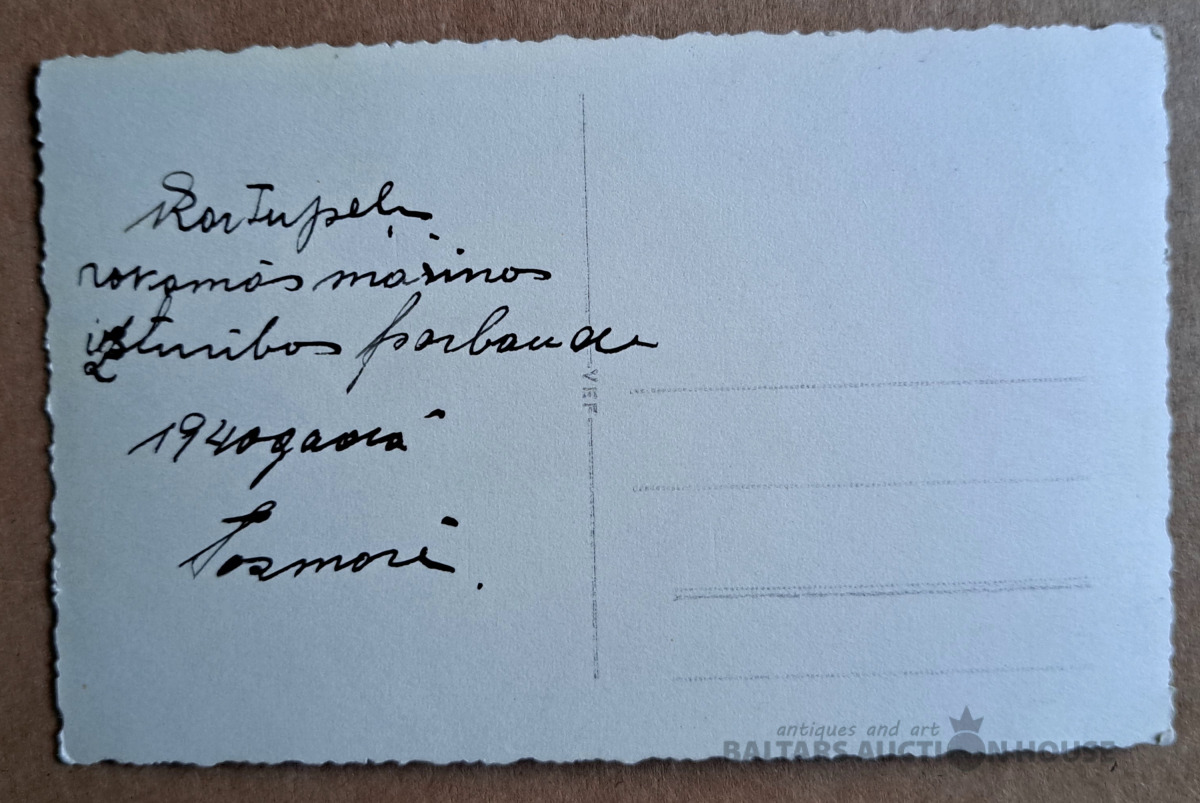 Kartupeļu
rokamās mašinas
izturības pārbaude
1940 gadā
Tosmarē.
VEF
antiques and art
BALTARS AUCTION HOUSE